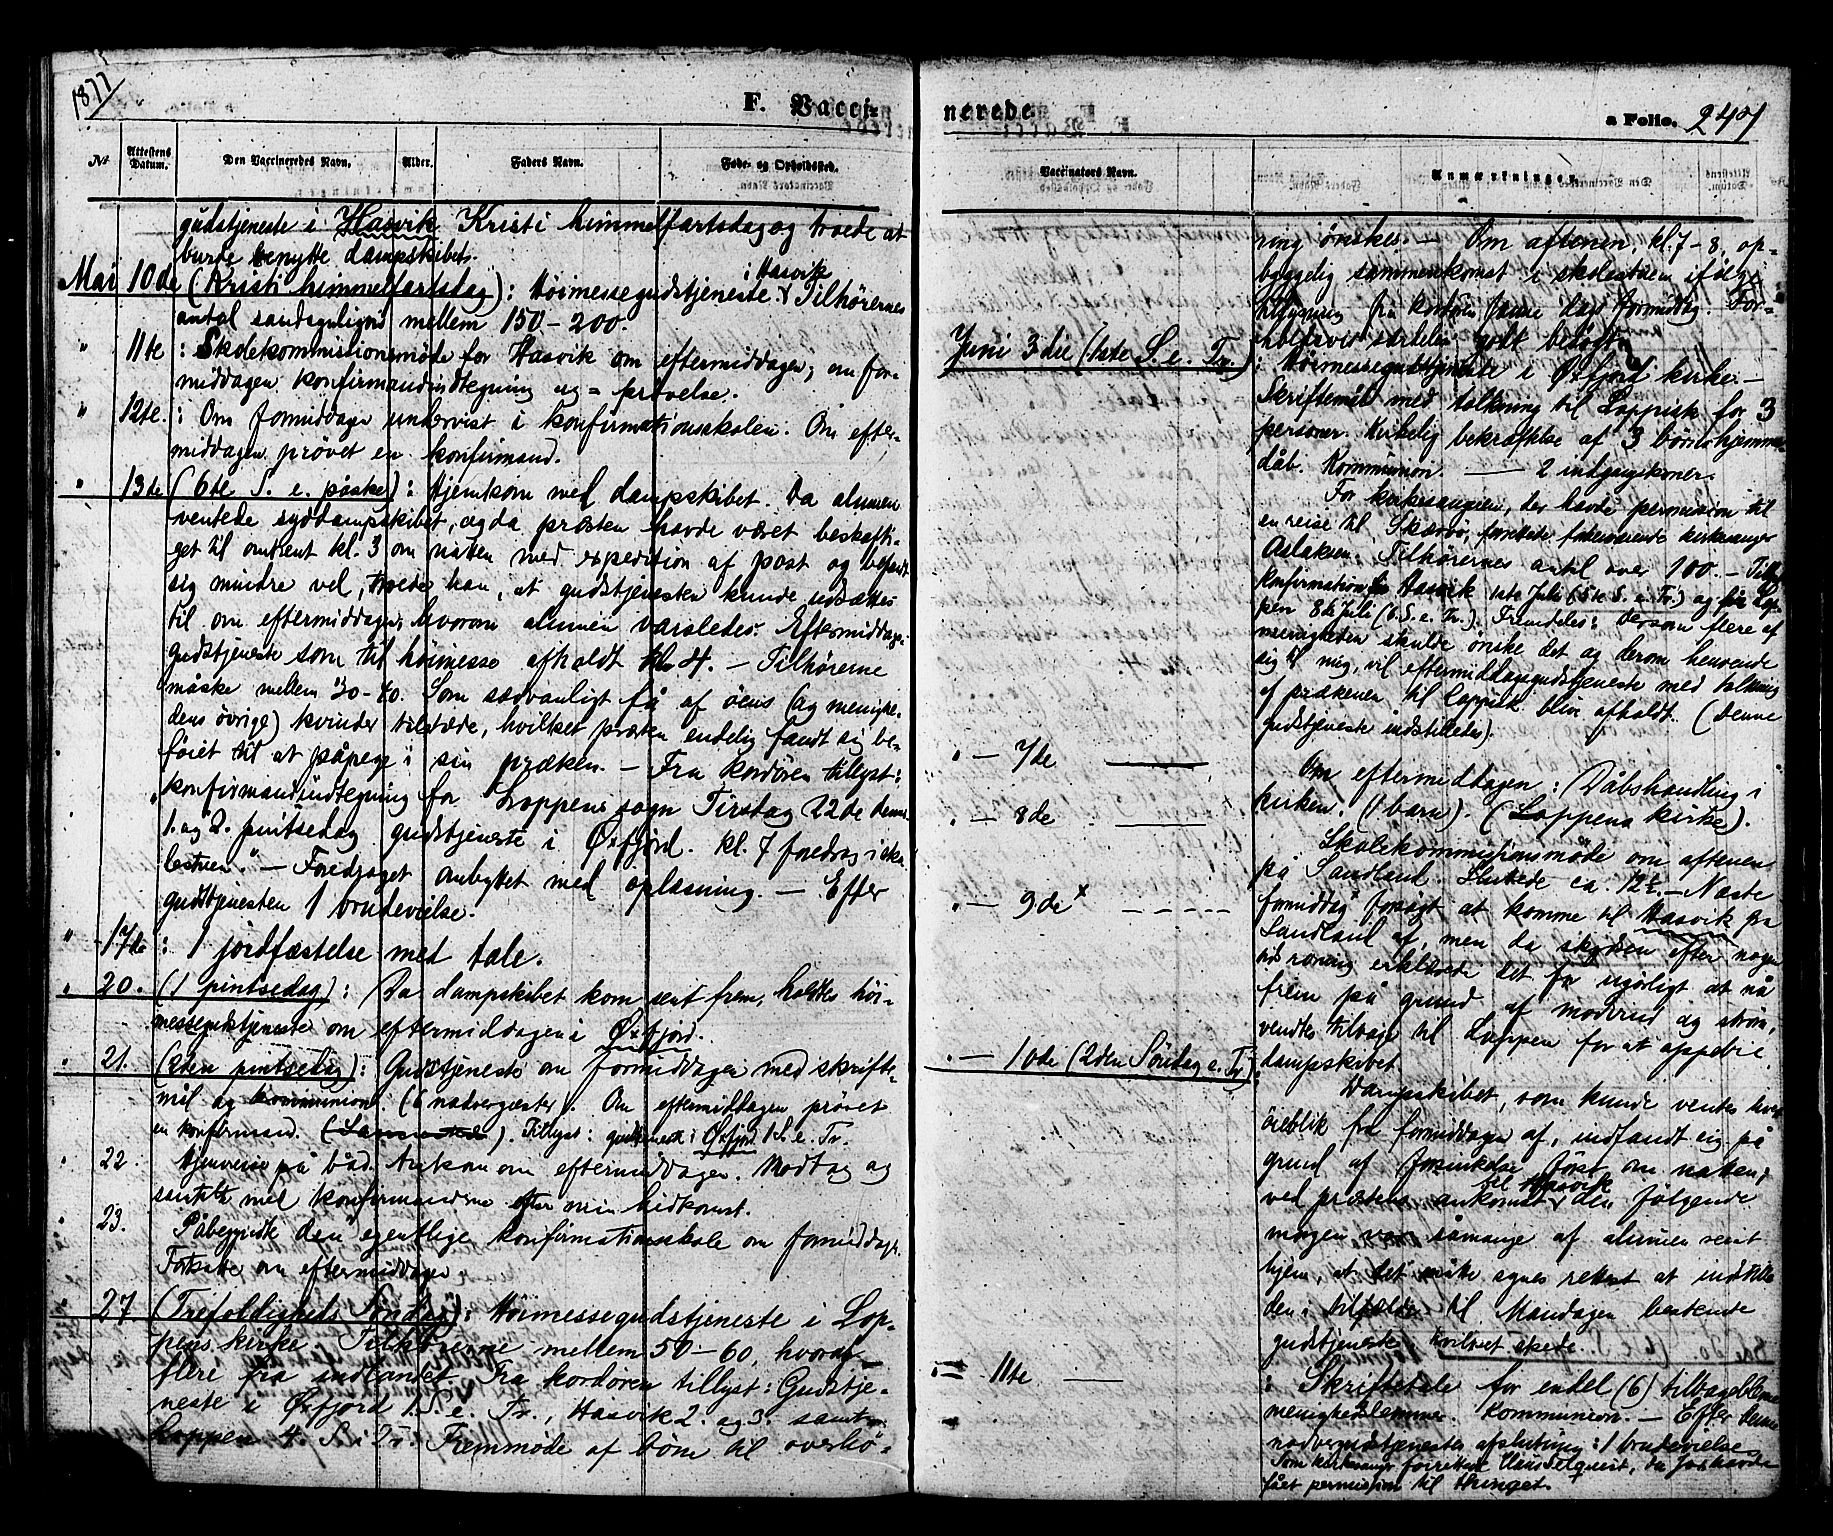 1877
F. Vacci-
№ Attestens Datum. Den Vaccineredes Navn, Alder. Faders Navn. Føde- og Opholdssted.
gudstjeneste i Hasvik Kristi himmelfartsdag og troede at
burde benytte dampskibet.
Mai 10de (Kristi himmelfartsdag): Høimessegudstjeneste i Hasvik. Tilhørernes
antal sandsynligvis mellem 150-200.
" 11te : Skolekommissionsmøde for Hasvik om eftermiddagen; om for-
middagen konfirmandindtegning og = prøvelse.
" 12te. : Om formiddagen undervist i konfirmationsskolen. Om efter-
middagen prøvet en konfirmand.
" 13de (6te S. e. påske): Hjemkom med dampskibet. Da alumen
ventede syddampskibet, og da præsten havde været beskæfti-
get til omtrent kl. 3 om natten med expedition af post og befandt
sig mindre vel, troede han, at gudstjenesten kunde udsættes
til om eftermiddagen, hvorom alumen varsledes. Eftermiddags-
gudstjeneste som til høimesse afholdt kl. 4. — Tilhørerne
måske mellem 30-40. Som sædvanligt få af øens (og menighe-
dens øvrige) kvinder tilstæde, hvilket præsten endelig fandt sig be-
føiet til at påpege i sin præken. — Fra kordøren tillyst:
"konfirmandindtegning for Loppens sogn Tirsdag 22de dennes
1. og 2. pintsedag gudstjeneste i Øxfjord. kl. 7 foredrag i sko-
lestuen." — Foredraget ombyttet med oplæsning. — Efter
gudstjenesten 1 brudevielse.
" 17de : 1 jordfæstelse med tale.
" 20. (1 pintsedag): Da dampskibet kom sent frem, holdtes høi-
messegudstjeneste om eftermiddagen i Øxfjord.
" 21. (2den pintsedag): Gudstjeneste om formiddagen med skrifte-
mål og kommunion. (6 nadvergæster). Om eftermiddagen prøvet
en konfirmand. Tillyst: gudstjeneste i Øxfjord 1 S. e. Tr.
" 22. Hjemreise på båd. Ankom om eftermiddagen. Modtog og
samtalte med konfirmanderne efter min hidkomst.
" 23. Påbegyndte den egentlige konfirmationsskole om formiddagen.
Fortsatte om eftermiddagen.
" 27 (Trefoldigheds Søndag): Høimessegudstjeneste i Lop-
pens kirke. Tilhørerne mellem 50-60, hvoraf
flere fra indlandet. Fra kordøren tillyst: Gudstje-
neste i Øxfjord 1. S. e. Tr., Hasvik 2. og 3. samt
Loppen 4. S. e. Tr. Fremmøde af børn til overhø-
nerede.
a Folio. 247
Vaccinators Navn. Anmærkninger.
ring ønskes. — Om aftenen, kl. 7-8, op-
byggelig sammenkomst i skolestuen ifølge
tillysning fra kordøren samme dags formiddag. For-
Juni 3die (1ste S. e. Tr.)
: Høimessegudstjeneste i Øxfjord kirke. —
Skriftemål med tolkning til Lappisk for 3
personer. Kirkelig bekræftelse af 3 børns hjemme-
dåb. Kommunion. — 2 indgangskoner.
For kirkesangeren, der havde permission til
en reise til Skærvø, forrettede forhenværende kirkesanger
Aslaksen. Tilhørernes antal over 100. — Tillyst
Konfirmation for Hasvik 1ste Juli (5te S. e. Tr.) og for Lop-
pen 8de Juli (6. S. e. Tr.). Fremdeles: Dersom flere af
menigheden skulde ønske det og derom henvende
sig til mig, vil eftermiddagsgudstjeneste med tolkning
af prækenen til Lappisk blive afholdt. (Denne
gudstjeneste indstilledes).
" — 7de — Om eftermiddagen: Dåbshandling i
kirken. (1 barn). (Loppens kirke).
" — 8de — Skolekommissionsmøde om aftenen
på Sandland. Sluttede ca. 12½. — Næste
" — 9de x — formiddag forsøgt at komme til Hasvik fra
Sandland af, men da skydsen efter nogen
tids roning erklærede det for ugørligt at nå
frem på grund af modvind og strøm,
vendtes tilbage til Loppen for at oppebie
dampskibet
" — 10de (2den Søndag e. Tr.): Dampskibet, som kunde ventes hvert
øieblik fra formiddagen af, indfandt sig på
grund af forsinkelse først om natten;
ved præstens ankomst til Hasvik den følgende
morgen var såmange af alumen reist
hjem, at det måtte synes rettest at indstille
den i tilfælde til Mandagen berammede
gudstjeneste, hvilket skede.
" — 11te — : Skriftetale for endel (6) tilbageblevne
menighedslemmer. Kommunion. — Efter denne
nadvergudstjenestes afslutning: 1 brudevielse.
Som kirkesanger forrettede da J. havde
fået permission til thinget.